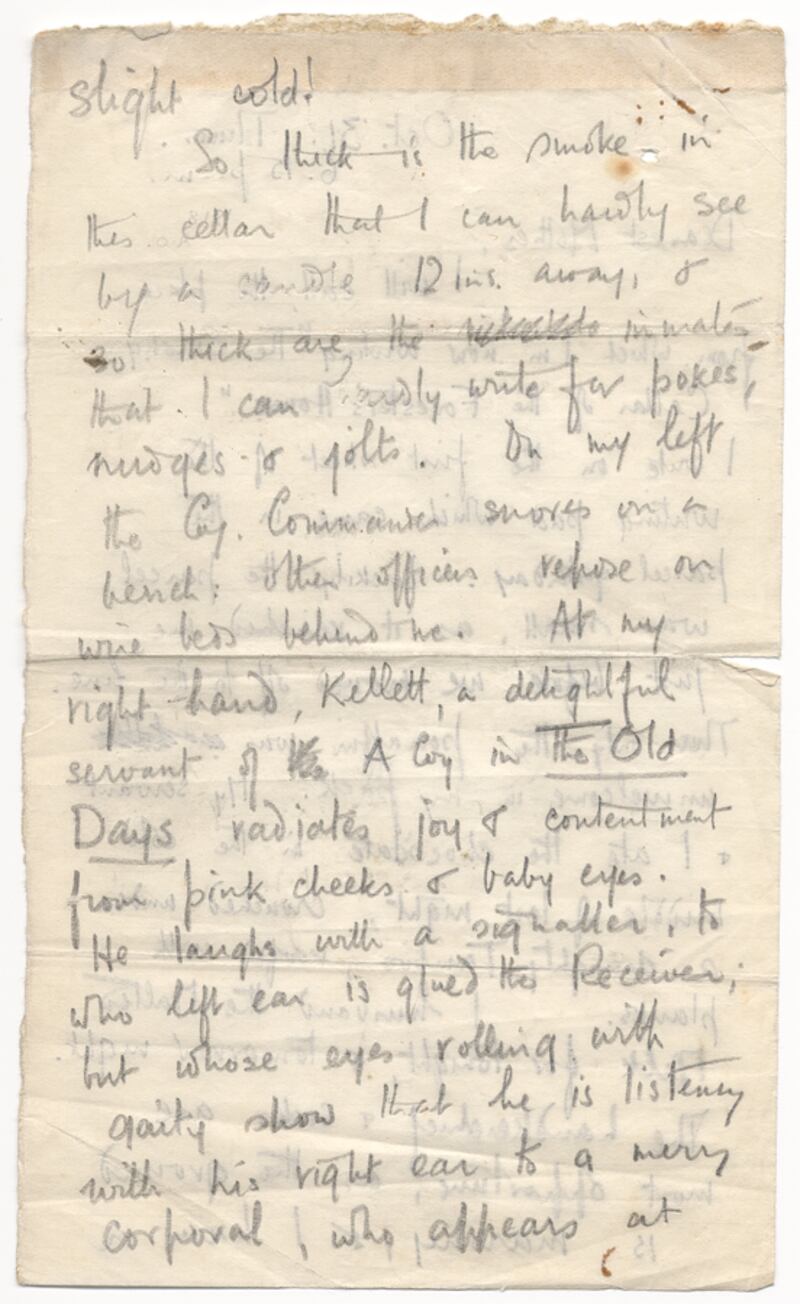 slight cold!
So thick is the smoke in
this cellar that I can hardly see
by a candle 12 ins. away, &
so thick are the inmates
that I can hardly write for pokes,
nudges & jolts. On my left
the Coy. Commander snores on a
bench: other officers repose on
wire beds behind me. At my
right hand, Kellett, a delightful
servant of A Coy in The Old
Days radiates joy & contentment
from pink cheeks & baby eyes.
He laughs with a signaller, to
who left ear is glued the Receiver;
but whose eyes rolling with
gaity show that he is listening
with his right ear to a merry
corporal, who appears at